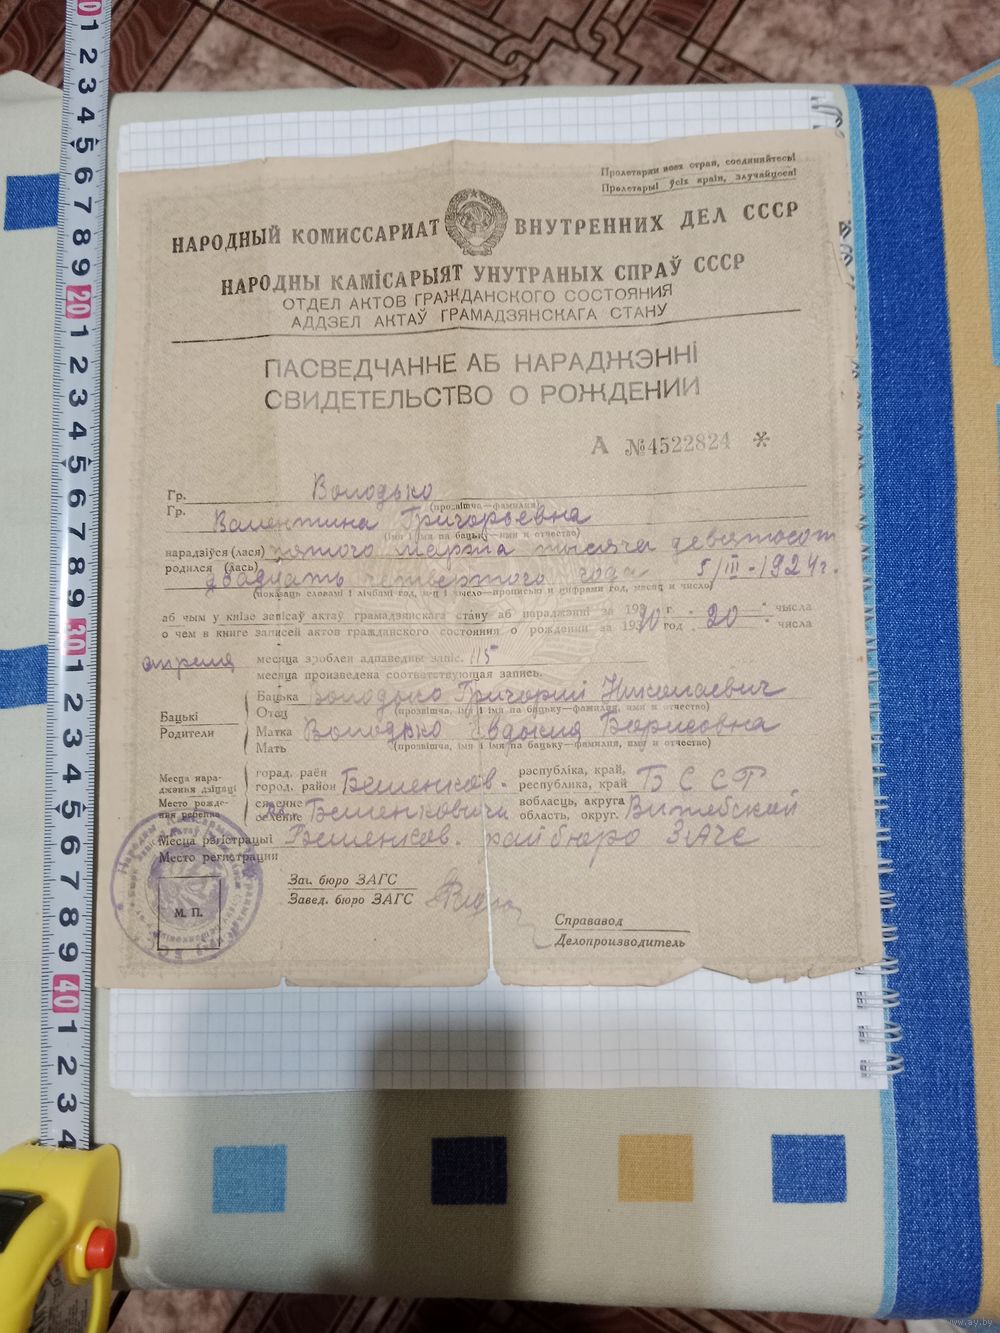 Пролетарии всех стран, соединяйтесь!
Пролетары ўсіх краін, злучайцеся!
НАРОДНЫЙ КОМИССАРИАТ ВНУТРЕННИХ ДЕЛ СССР
НАРОДНЫ КАМІСАРЫЯТ УНУТРАНЫХ СПРАЎ СССР
ОТДЕЛ АКТОВ ГРАЖДАНСКОГО СОСТОЯНИЯ
АДДЗЕЛ АКТАЎ ГРАМАДЗЯНСКАГА СТАНУ
ПАСВЕДЧАННЕ АБ НАРАДЖЭННІ
СВИДЕТЕЛЬСТВО О РОЖДЕНИИ
А №4522824 *
Гр. Володько
(прозвішча—фамилия)
Гр. Валентина Григорьевна
(імя і імя па бацьку—имя и отчество)
нарадзіўся (лася) пятого марта тысяча девятьсот
родился (лась) двадцать четвертого года 5/III-1924г.
(показаць словамі і лічбамі год, м-ц і чысло—прописью и цифрами год, месяц и число)
аб чым у кнізе запісаў актаў грамадзянскага стану аб нараджэнні за 19 г. 20 чысла
о чем в книге записей актов гражданского состояния о рождении за 19 40 год числа
апреля месяца зроблен адпаведны запіс. 115
месяца произведена соответствующая запись.
Бацькі
Родители
Бацька Володько Григорий Николаевич
Отец (прозвішча, імя і імя па бацьку—фамилия, имя и отчество)
Матка Володько Евдокия Борисовна
Мать (прозвішча, імя і імя па бацьку—фамилия, имя и отчество)
Месца нараджэння дзіцяці
Место рождения ребенка
горад, раён
город, район Бешенков. рэспубліка, край,
республика, край БССР
селение Бешенковичи вобласць, акруга
область, округ. Витебской
Месца рэгістрацыі Бешенков. райбюро ЗАГС
Место регистрации
М. П.
Заг. бюро ЗАГС
Завед. бюро ЗАГС
Справавод
Делопроизводитель
1 2 3 4 5 6 7 8 9 20 1 2 3 4 5 6 7 8 9 30 1 2 3 4 5 6 7 8 9 40 1 2 3 4
www.ay.by